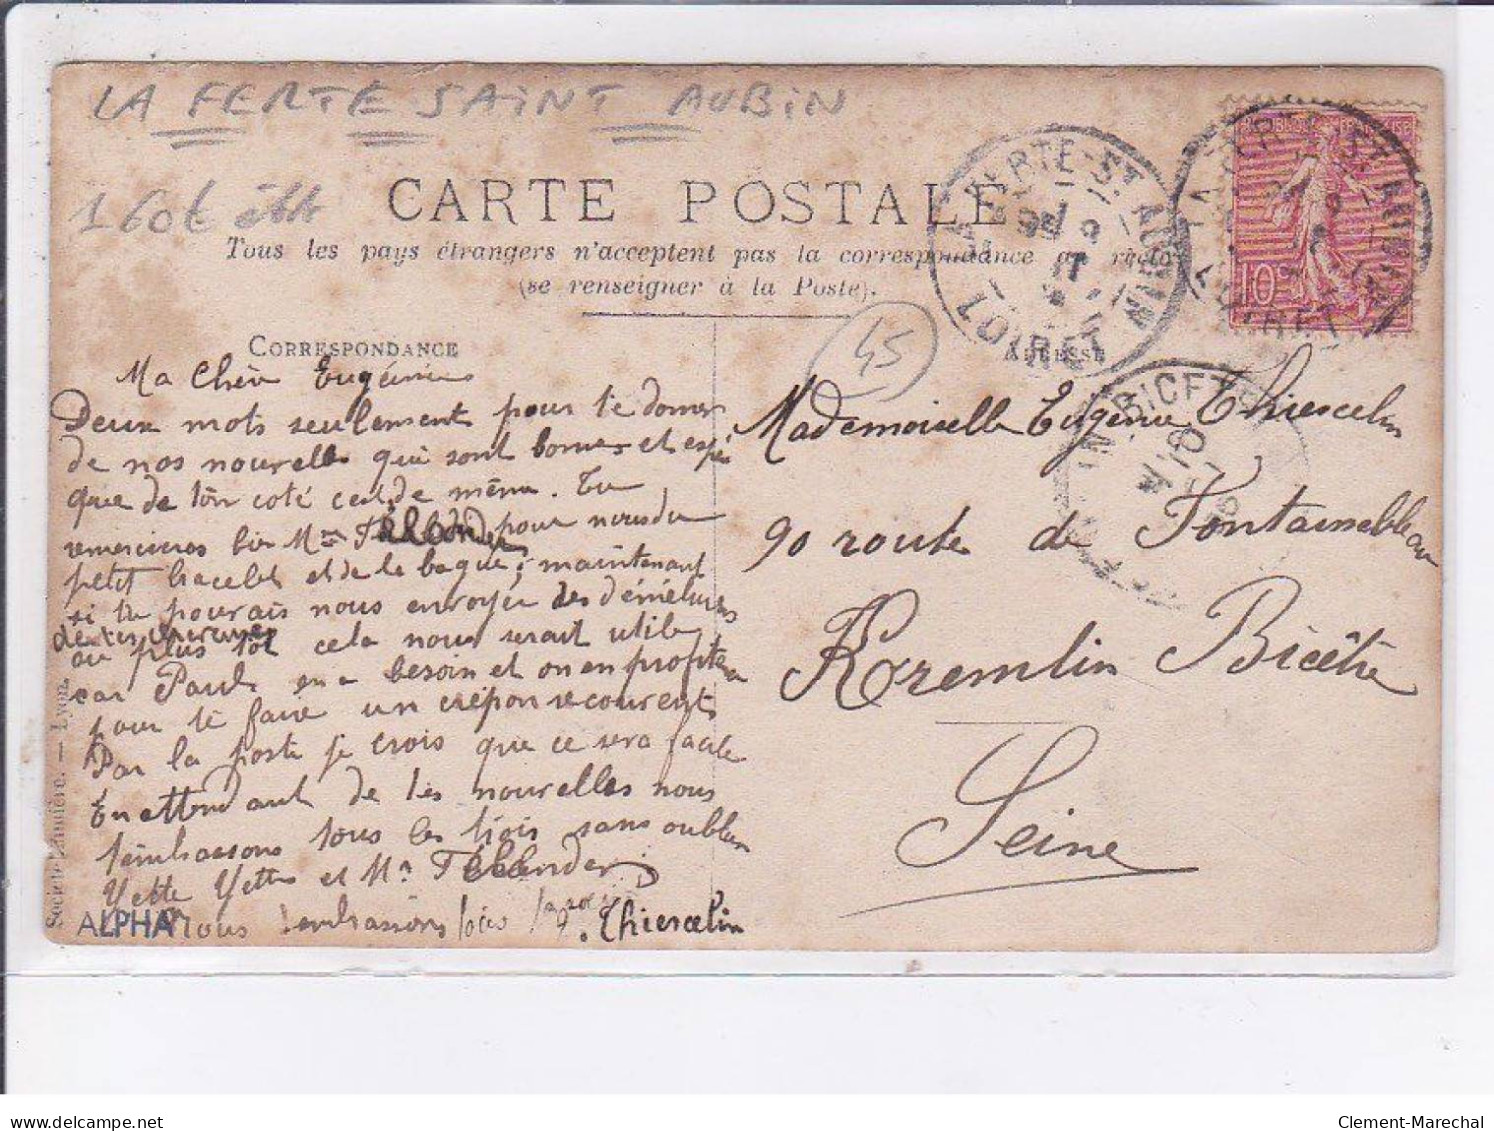 LA FERTE SAINT AUBIN
160€
CARTE POSTALE
Tous les pays étrangers n'acceptent pas la correspondance au recto
(se renseigner à la Poste).
45
LA FERTE-ST AUBIN
LOIRET
LA FERTE-ST AUBIN
LOIRET
10c
CORRESPONDANCE
ADRESSE
Ma Chère Eugénie
Deux mots seulement pour te donner
de nos nouvelles qui sont bonnes et espère
que de ton coté c'est de même. Tu
remercieras bien Mme pour nous du
petit bracelet et de la bague, maintenant
si tu pourais nous envoyer des démêlures
de tes cheveux
au plus tôt cela nous serait utile
car Paul en a besoin et on en profitera
pour te faire un crépon
Par la poste je crois que ce sera facile
En attendant de tes nouvelles nous
t'embrassons tous les trois sans oublier
Yette et Mr
Nous Thiescelin
Mademoiselle Eugénie Thiescelin
90 route de Fontainebleau
Kremlin Bicêtre
Seine
KREMLIN BICETRE
Société Lumière. — Lyon.
ALPHA
www.delcampe.net
Clement-Marechal